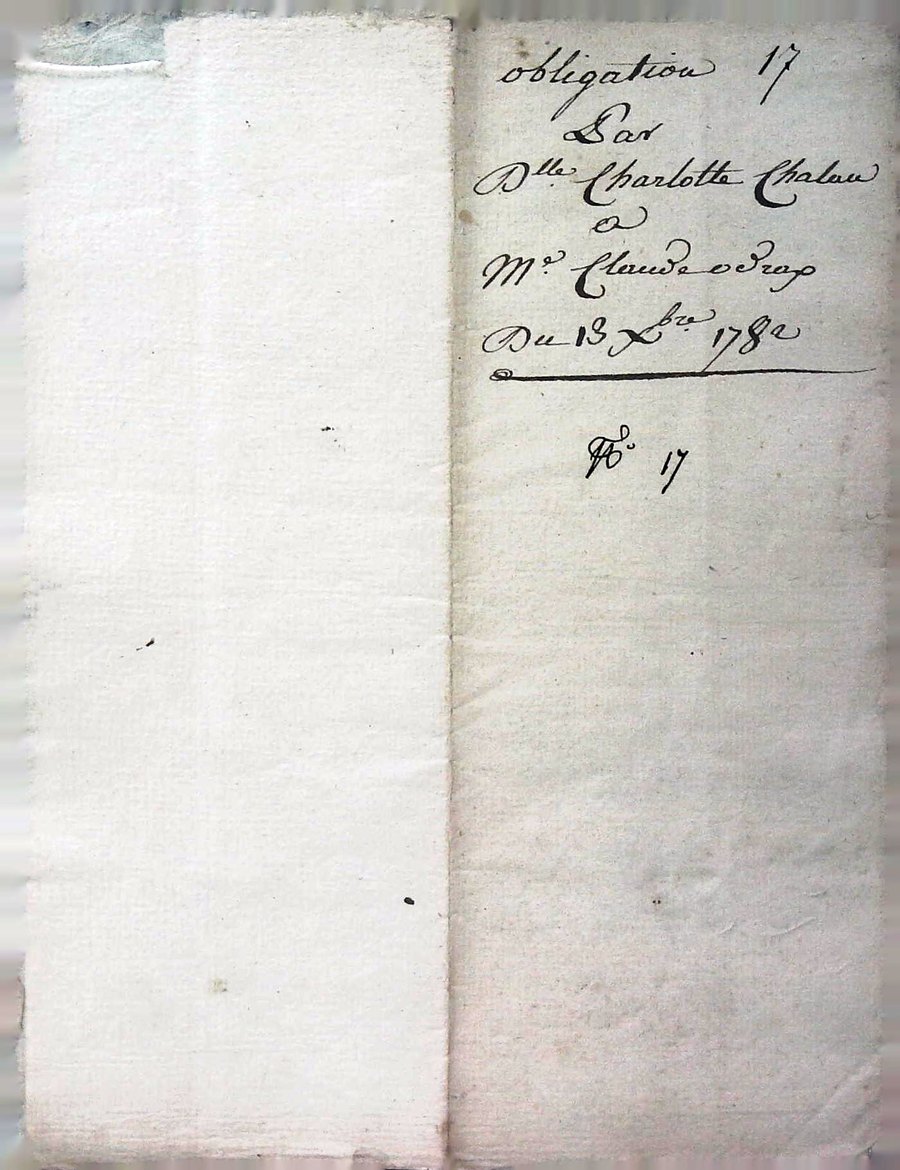 obligation 17
Par
Dlle Charlotte Chalau
a
Me Claude odrap
Du 13 Xbre 1782
No 17